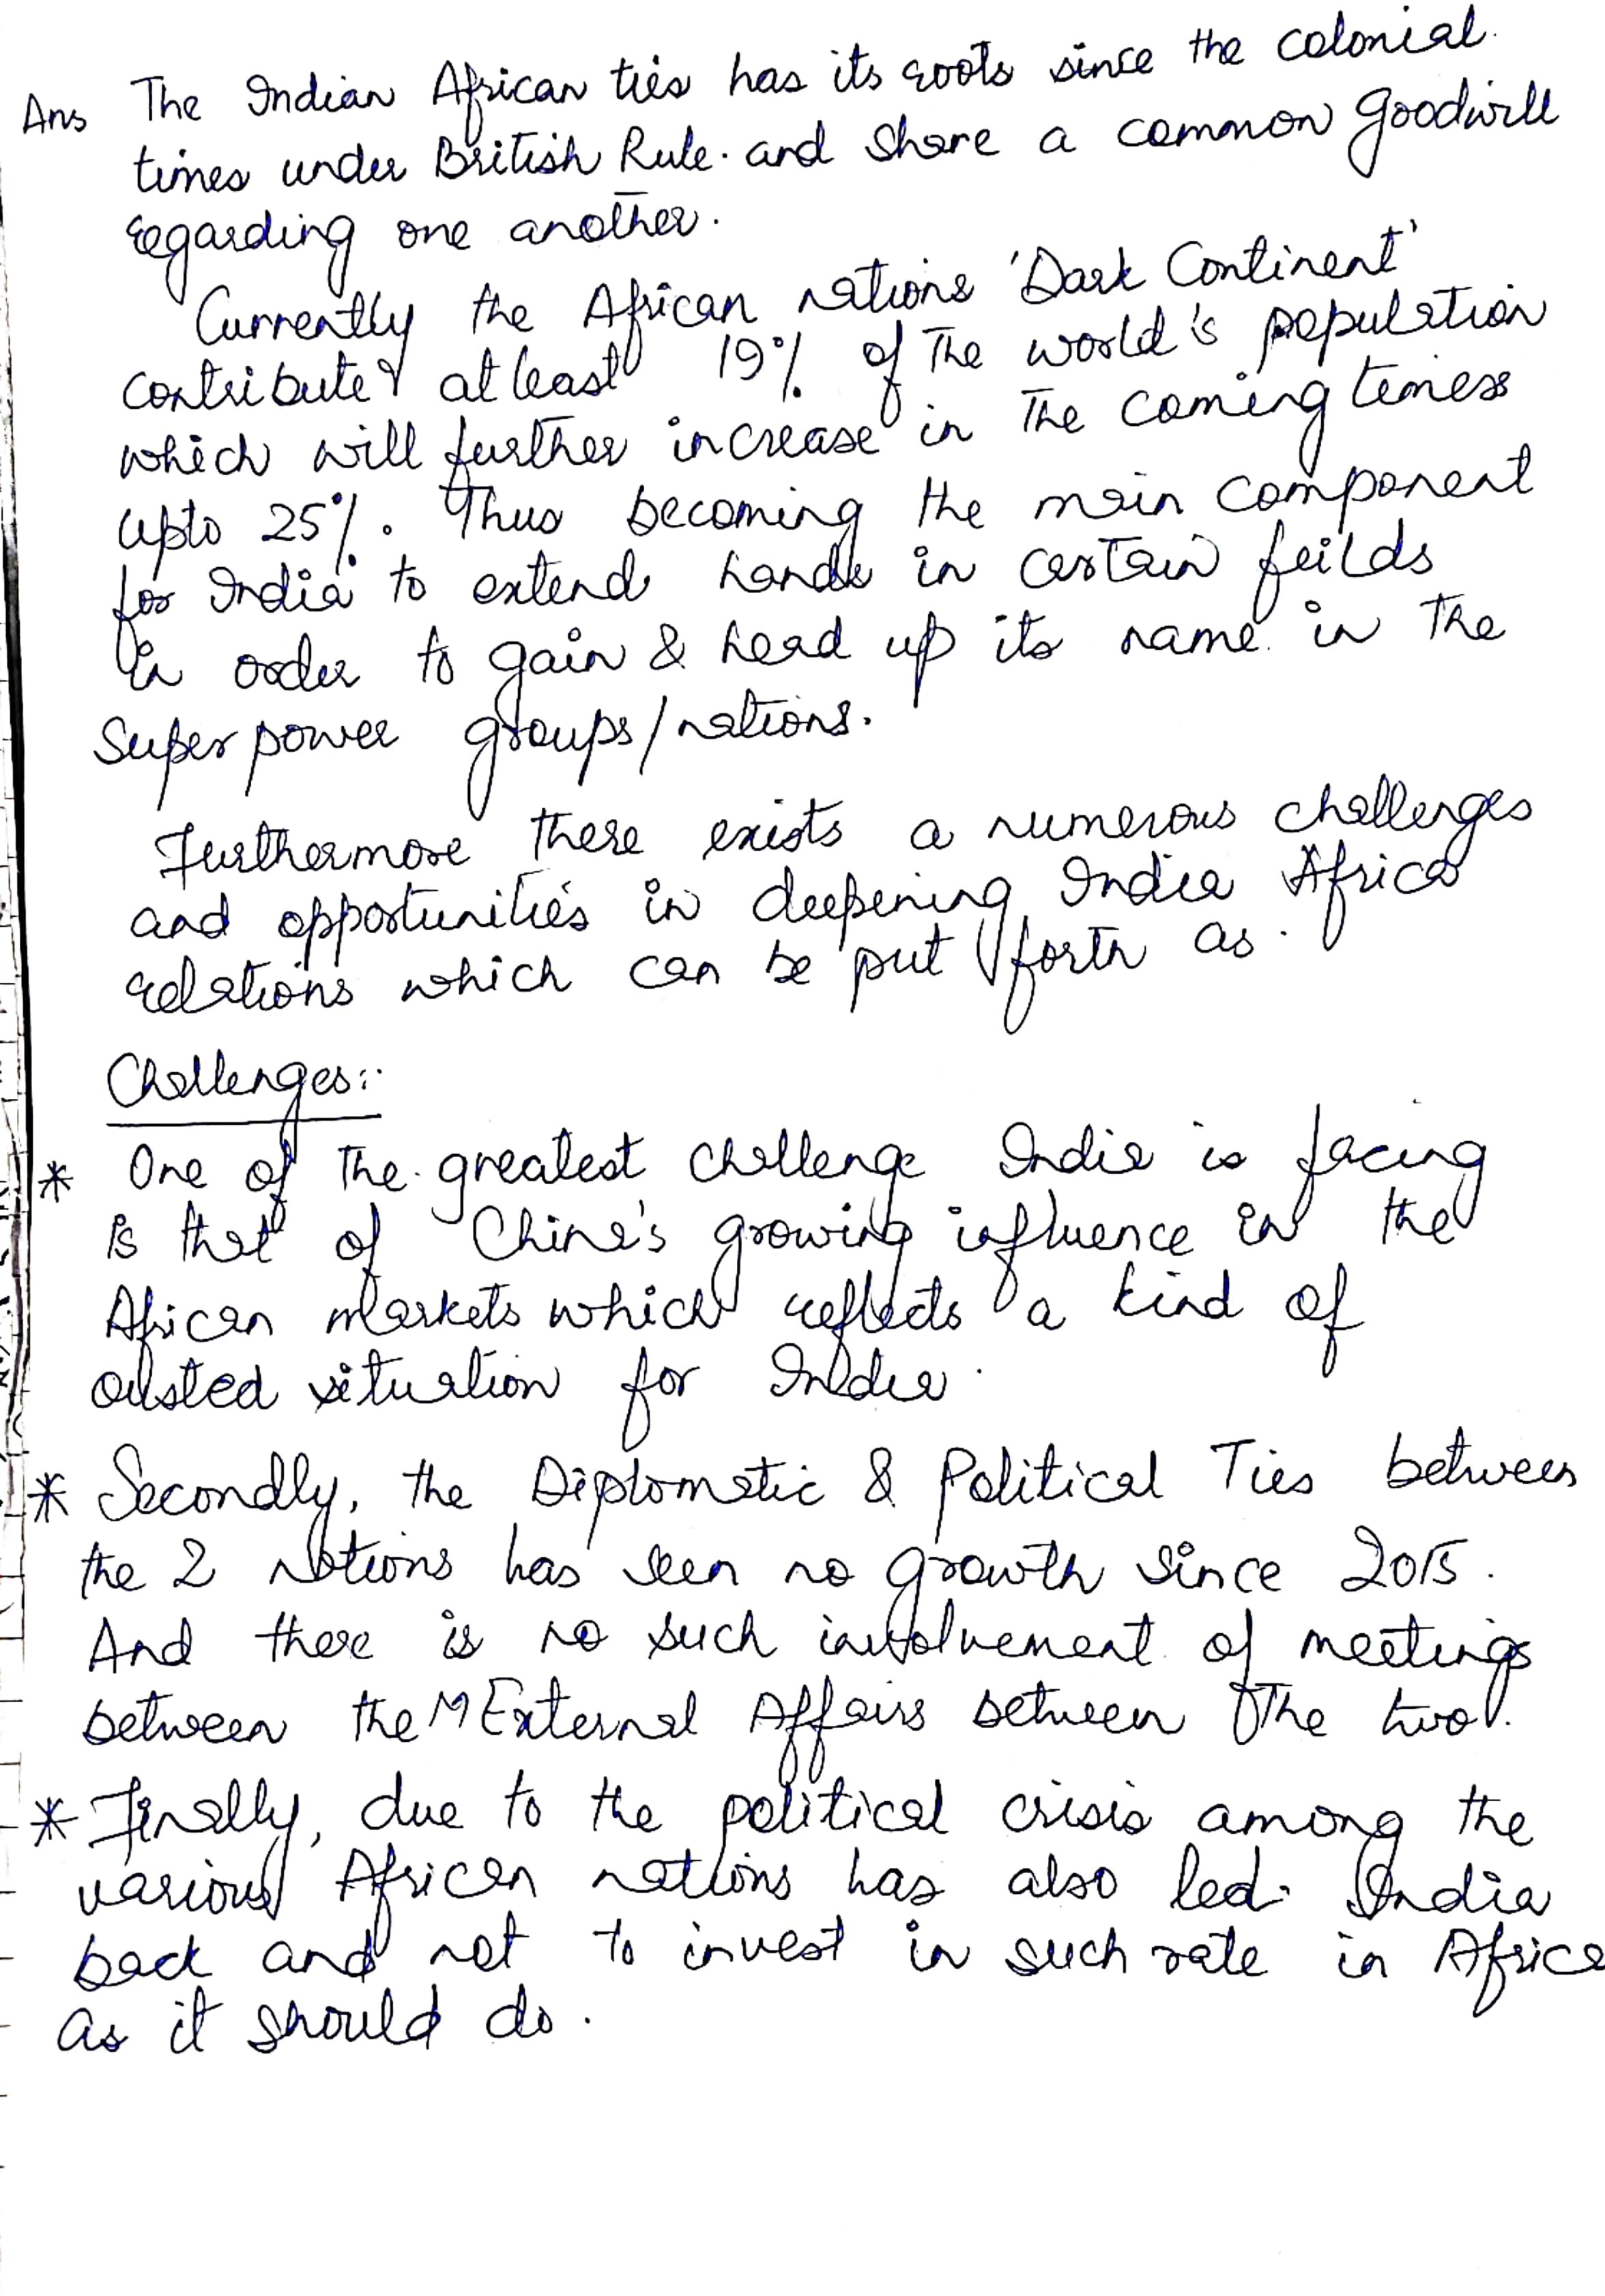 Ans The Indian African ties has its roots since the colonial
times under British Rule. and share a common goodwill
regarding one another.
Currently the African nations 'Dark Continent'
contribute at least 19% of the world's population
which will further increase in the coming times
upto 25%. Thus becoming the main component
for India to extend hands in certain feilds
in order to gain & head up its name in the
Superpower groups/nations.
Furthermore there exists a numerous challenges
and opportunities in deepening India Africa
relations which can be put forth as.
Challenges:-
* One of the greatest challenge India is facing
is that of China's growing influence in the
African markets which reflects a kind of
ousted situation for India.
* Secondly, the Diplomatic & Political Ties between
the 2 nations has seen no growth since 2015.
And there is no such involvement of meetings
between the M External Affairs between the two.
* Finally, due to the political crisis among the
various African nations has also led India
back and not to invest in such rate in Africa
as it should do.